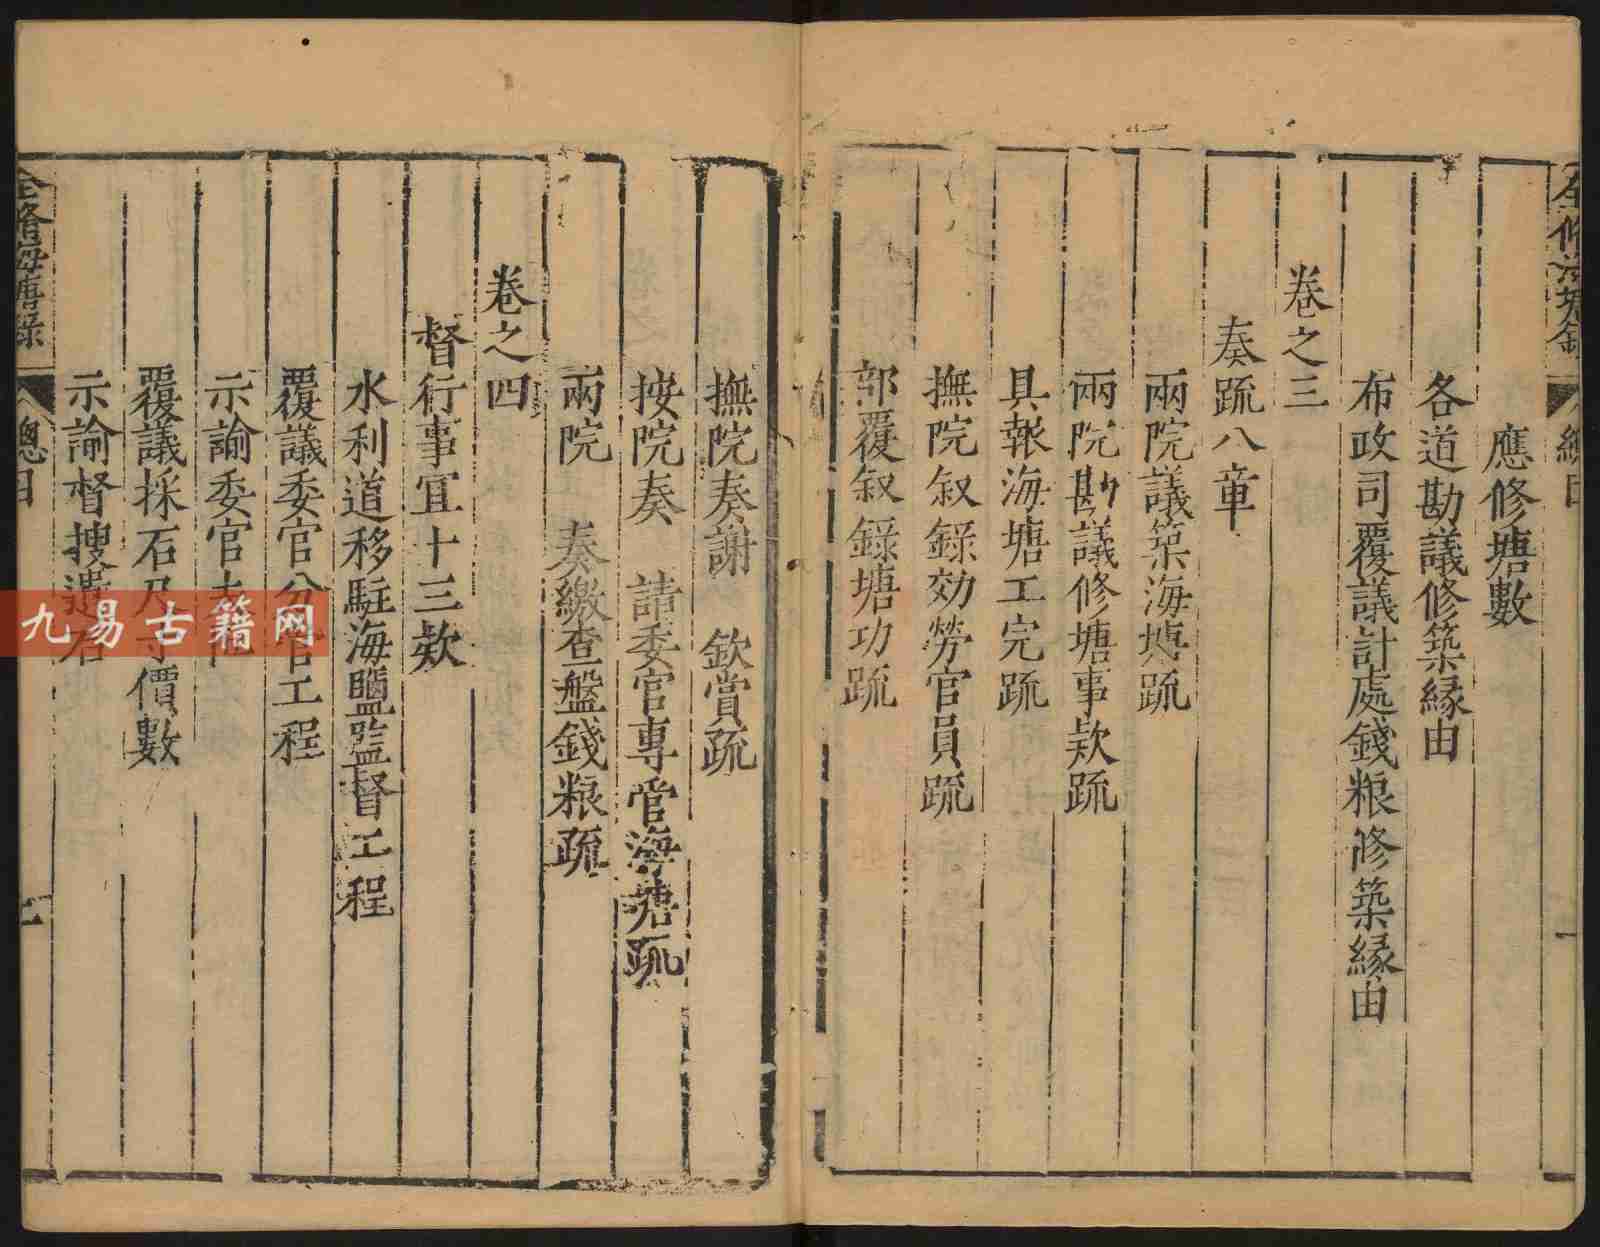 全修海塘錄
總目
一
應修塘數
各道勘議修築緣由
布政司覆議計處錢粮修築緣由
卷之三
奏疏八章
兩院議築海塘疏
兩院勘議修塘事欵疏
具報海塘工完疏
撫院叙錄効勞官員疏
部覆叙錄塘功疏
撫院奏謝 欽賞疏
按院奏 請委官專管海塘疏
兩院 奏繳查盤錢粮疏
卷之四
督行事宜十三欵
水利道移駐海鹽監督工程
覆議委官分管工程
示諭委官
覆議採石及寸價數
示諭督搜遺石
全修海塘錄
總目
二
九易古籍网